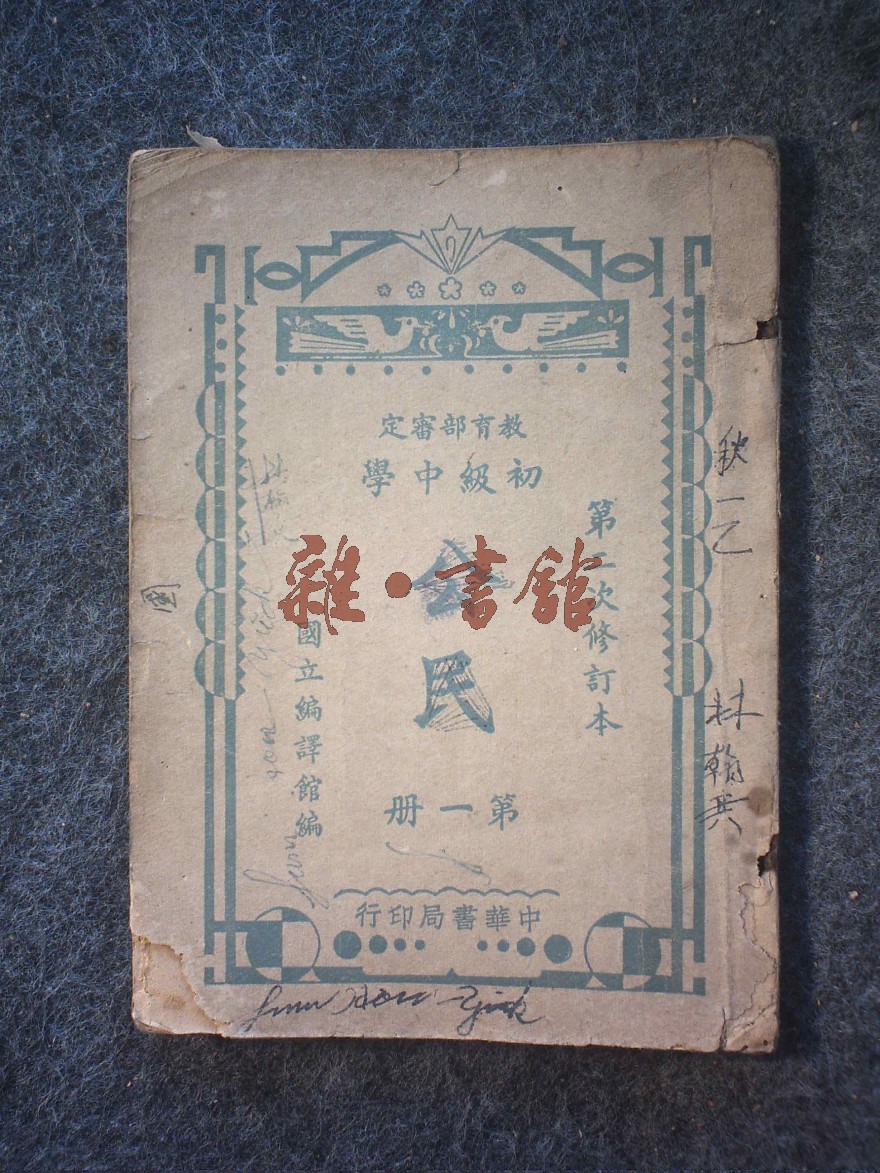 教育部審定
初級中學
第二次修訂本
公民
國立編譯館編
第一冊
中華書局印行
雜·書館
秋一乙
林